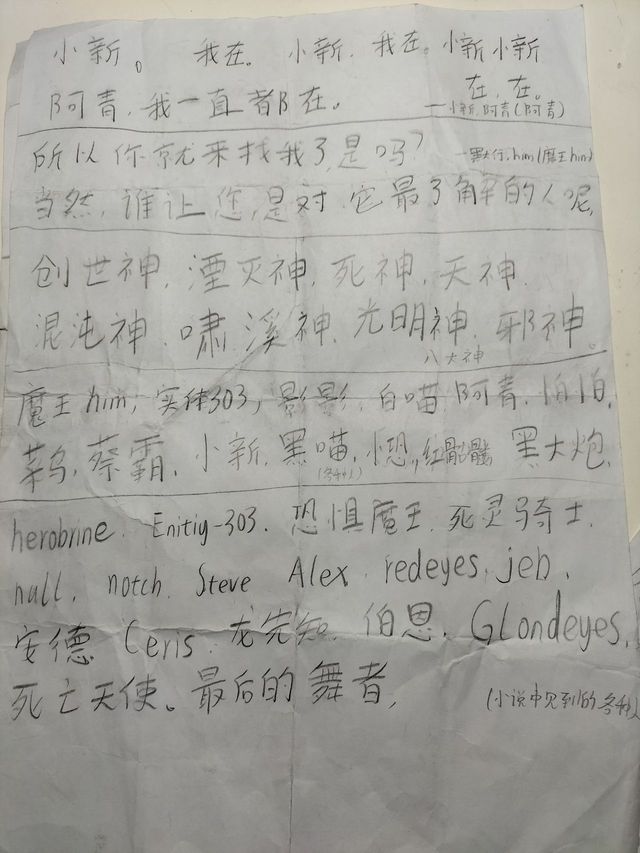 小新。 我在。 小新. 我在。 小新小新
在, 在。
阿青, 我一直都在。
—小新,阿青(阿青)
所以你就来找我了,是吗?
当然, 谁让您,是对 它最了解的人呢,
创世神, 湮灭神, 死神, 天神,
混沌神, 啸溪神, 光明神, 邪神。
八大神
魔王him, 实体303, 影影, 白喵, 阿青, 怕怕,
菜鸟, 蔡霸, 小新, 黑喵, 小恐, 红骷髅, 黑大炮,
herobrine, Enitiy-303, 恐惧魔王, 死灵骑士,
null, notch, Steve Alex, redeyes, jeb,
安德 Ceris, 龙先知, 伯恩, Glondeyes,
死亡天使。最后的舞者,
(小说中见到的各种)